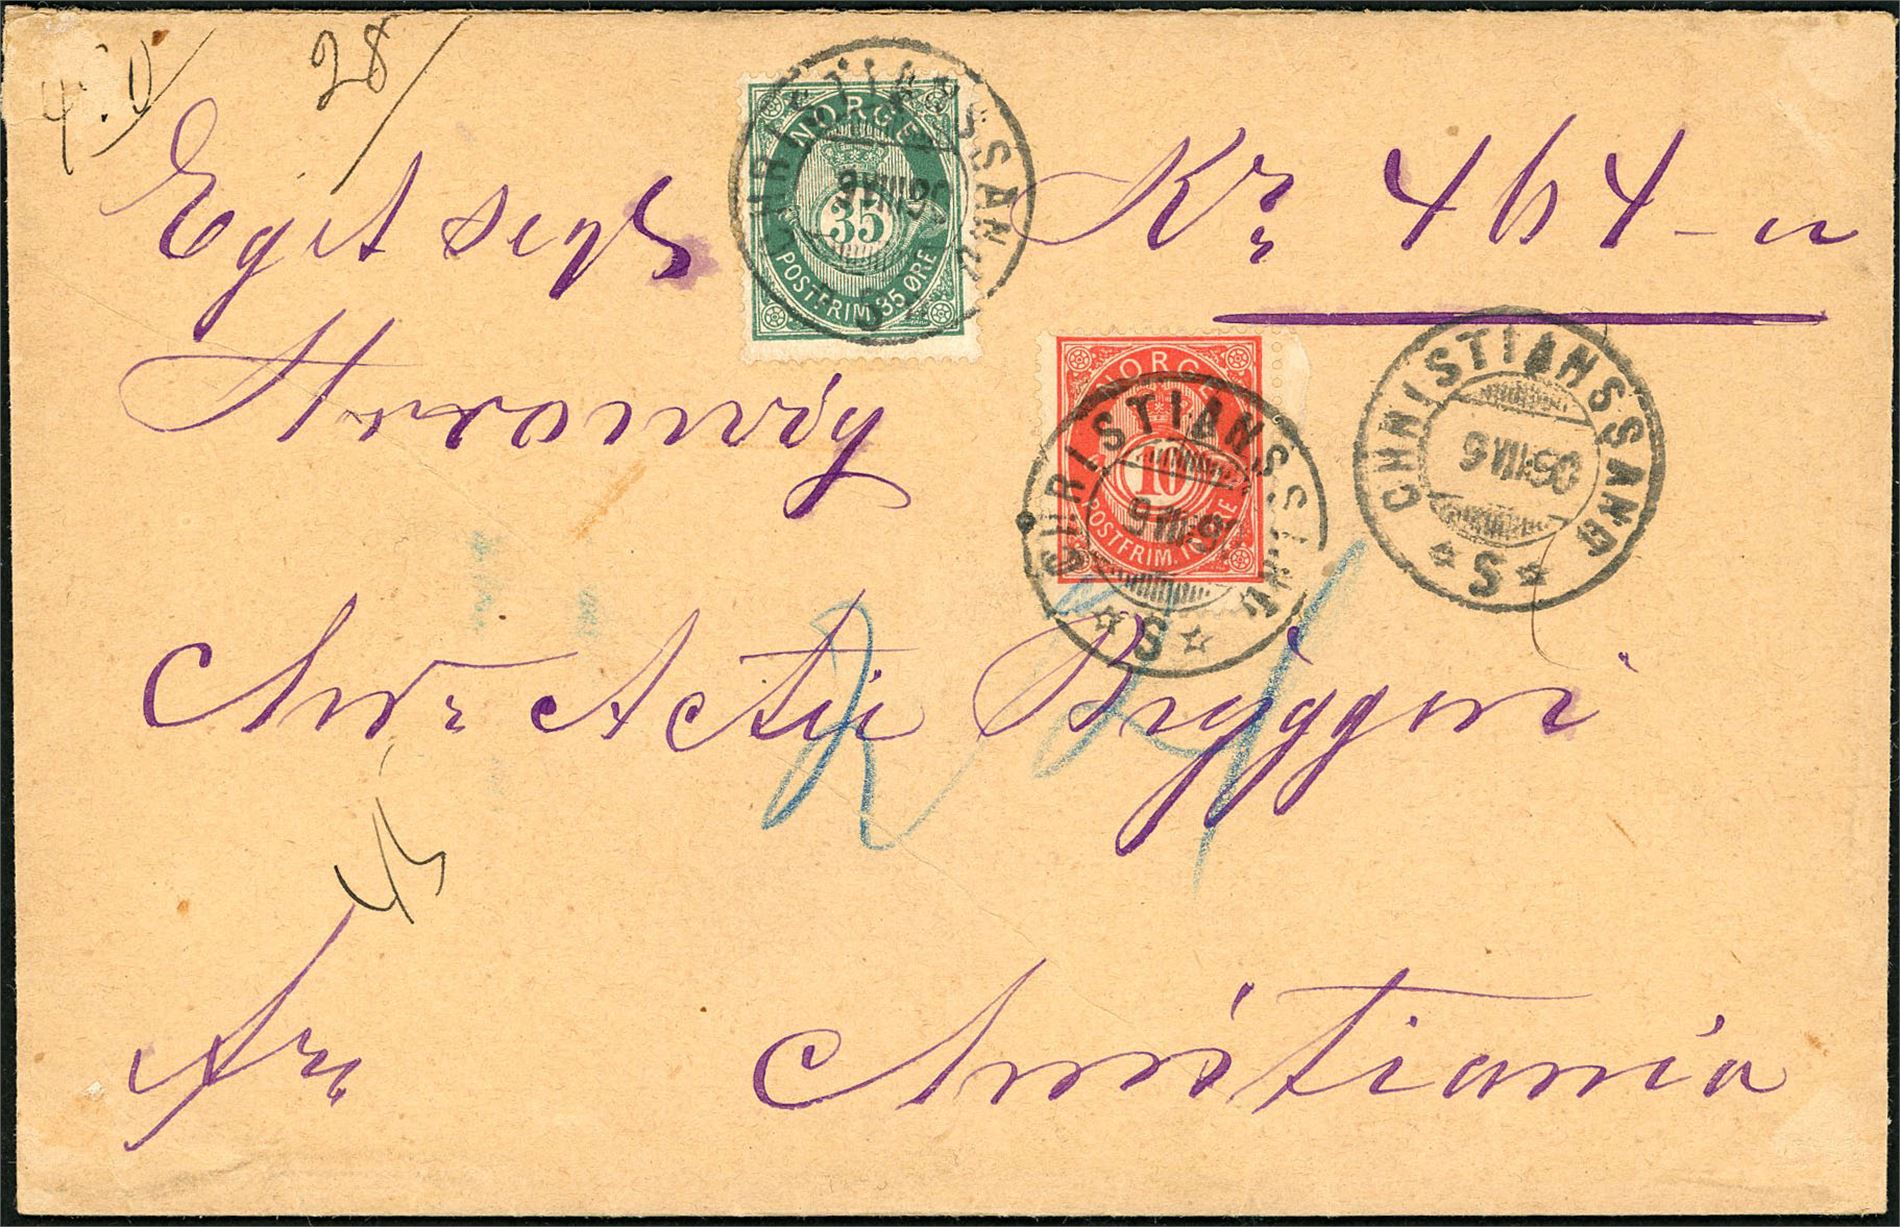 28
Eget segl Kr 464 -
NORGE
35
POSTFRIM. 35 ØRE
CHRISTIANSSAND
S
NORGE
10
POSTFRIM. 10 ØRE
CHRISTIANSSAND
S
CHRISTIANSSAND
S
Chra Actie Bryggeri
45
Christiania